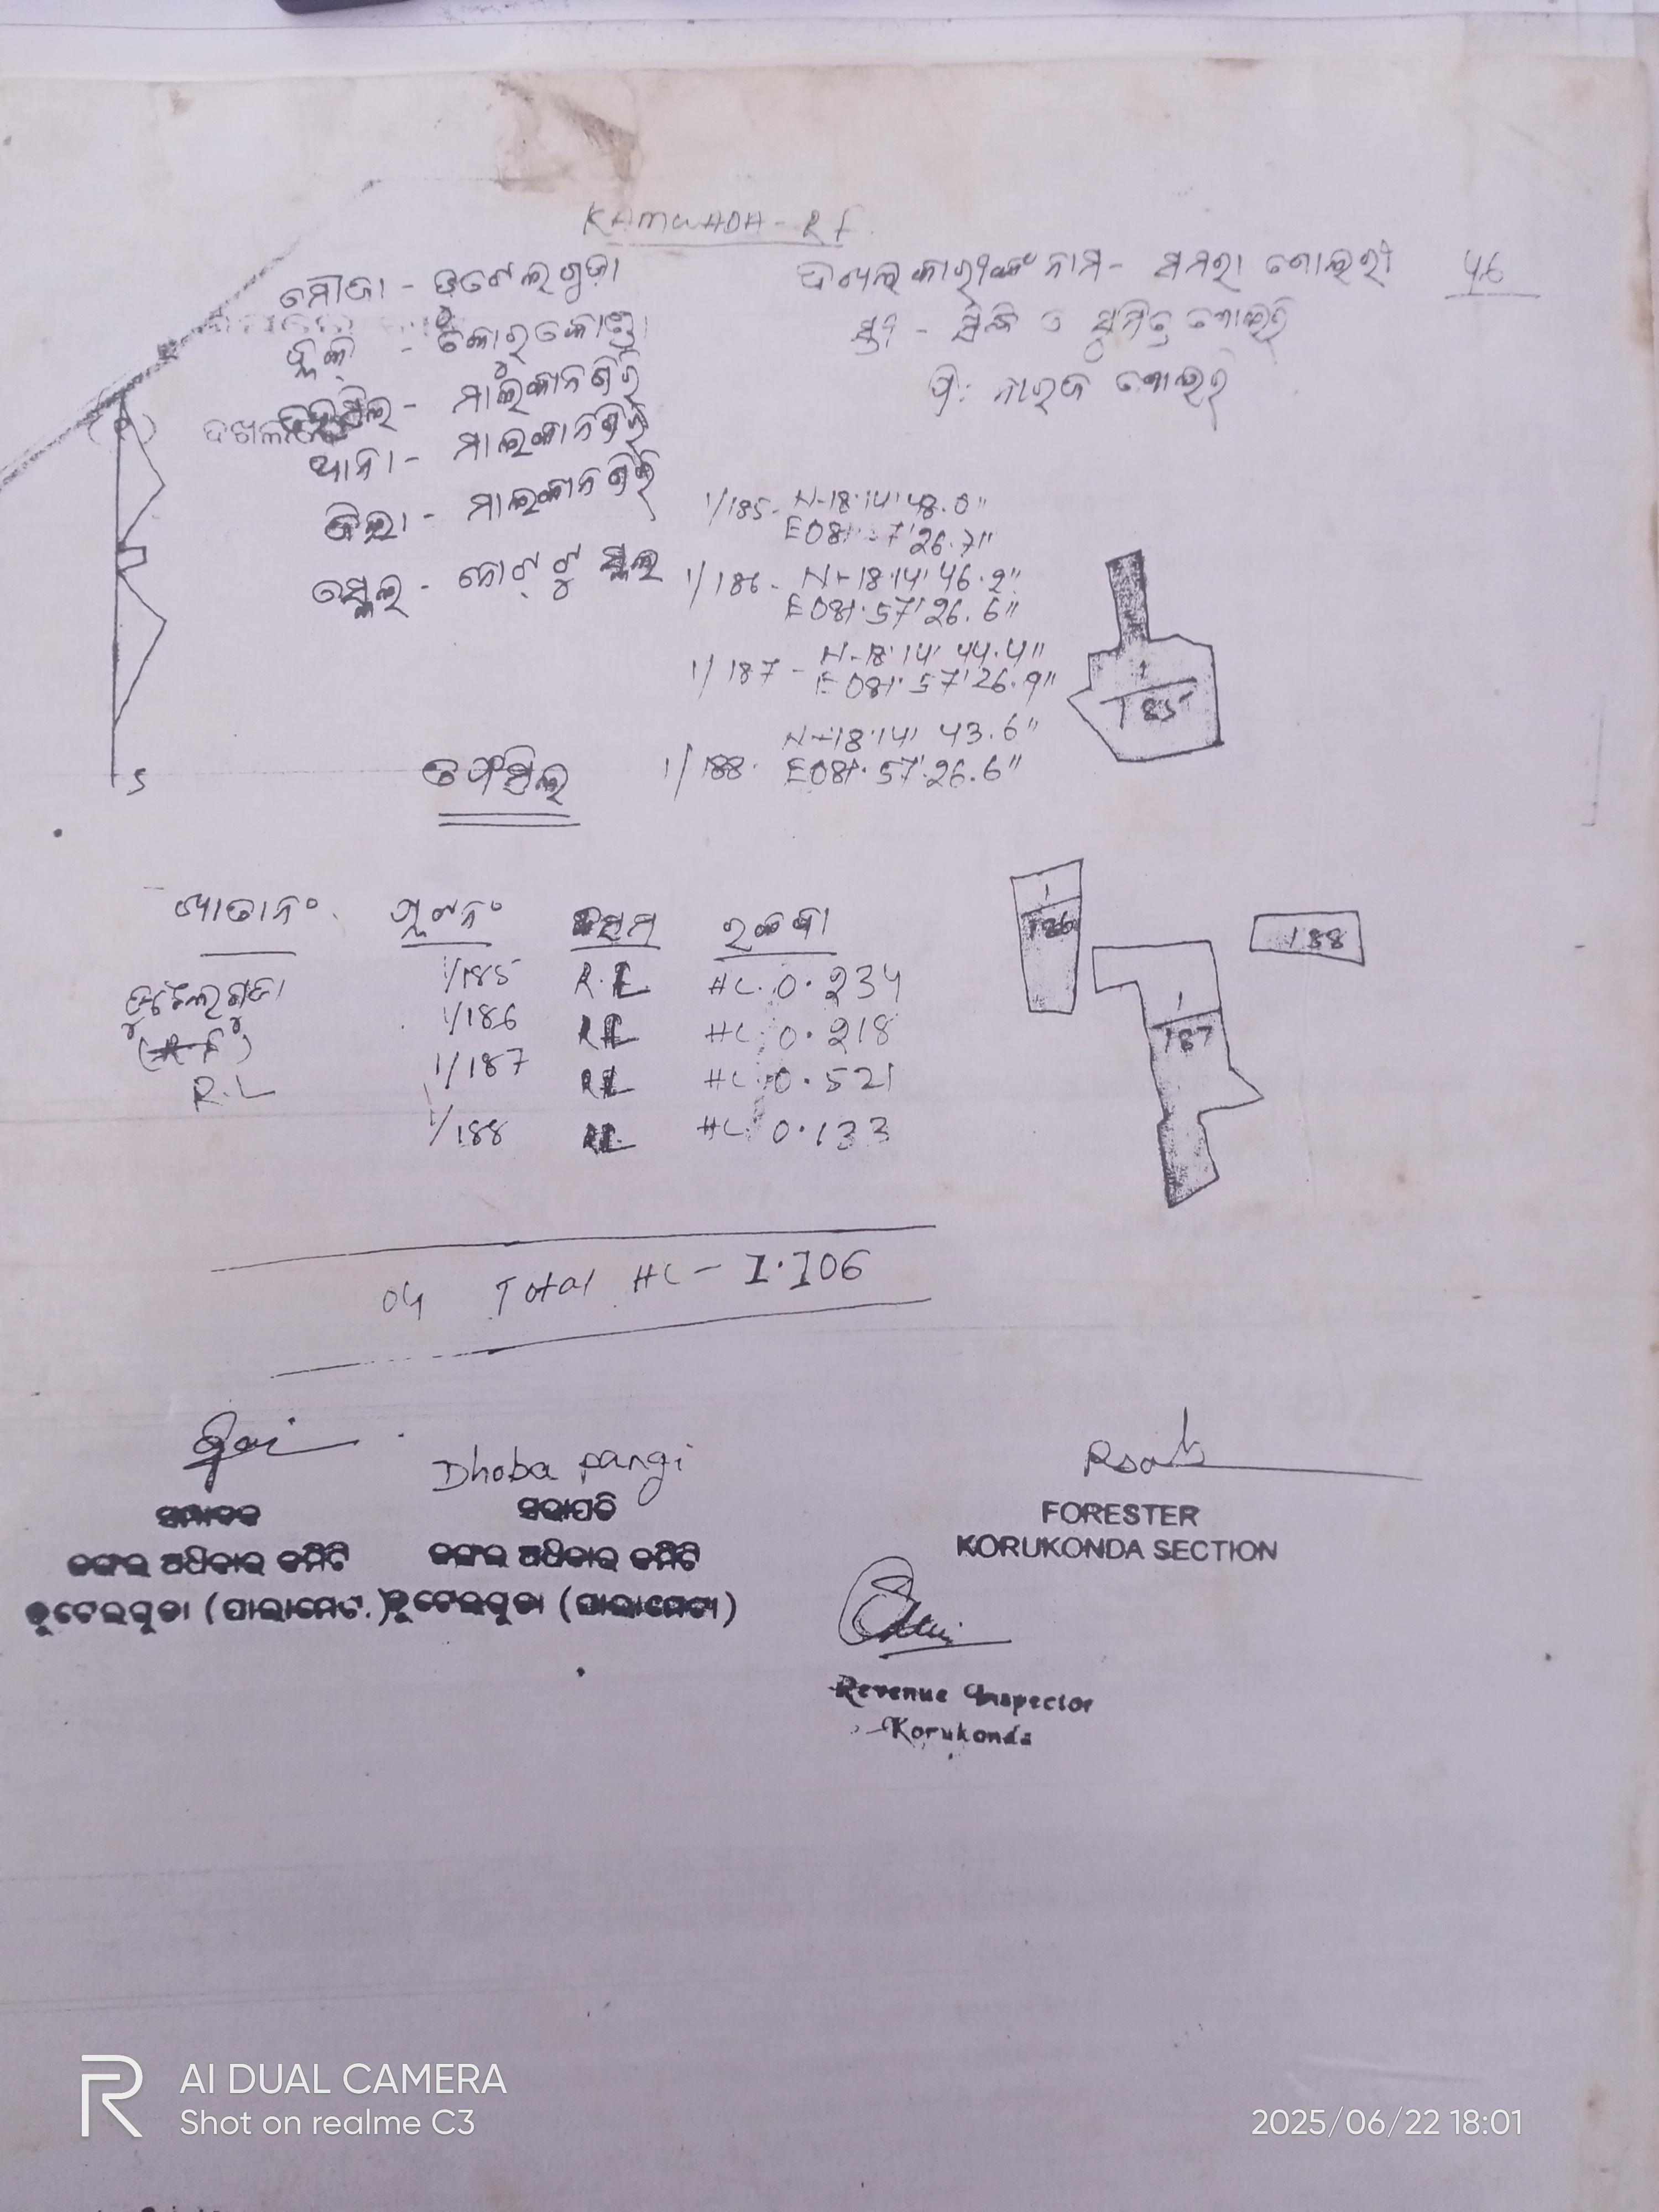 KAMWADA - RF
ମୌଜା - ଡୁଟେଲଗୁଡ଼ା
ଦଖଲକାରୀଙ୍କ ନାମ - ସମରା ଗୋଲରୀ 46
ବ୍ଲକ୍ - କୋରୁକୋଣ୍ଡା
ତହସିଲ - ମାଲକାନଗିରି
ଥାନା - ମାଲକାନଗିରି
ଜିଲ୍ଲା - ମାଲକାନଗିରି
ସ୍କେଲ - ନୋଟ୍ ଟୁ ସ୍କେଲ
1/185 - N-18°14'48.0"
E081° 7'26.7"
1/186 - N-18°14'46.2"
E081°57'26.6"
1/187 - N-18°14'44.4"
E081°57'26.9"
1/188 - N-18°14'43.6"
E081°57'26.6"
S
1
185
ତଫସିଲ
1
186
188
1
187
ଖାତାନଂ ପ୍ଲଟନଂ କିସମ ରକବା
ଡୁଟେଲଗୁଡା 1/185 R.L HC. 0.234
1/186 RL HC 0.218
R.L 1/187 RL HC 0.521
1/188 RL HC 0.133
04 Total HC - 1.106
Dhoba pangi
ସମ୍ପାଦକ ସଭାପତି
ଜଙ୍ଗଲ ଅଧିକାର କମିଟି ଜଙ୍ଗଲ ଅଧିକାର କମିଟି
ଡୁଟେଲଗୁଡା (ପାଲାମେଟା) ଡୁଟେଲଗୁଡା (ପାଲାମେଟା)
FORESTER
KORUKONDA SECTION
Revenue Inspector
Korukonda
AI DUAL CAMERA
Shot on realme C3
2025/06/22 18:01